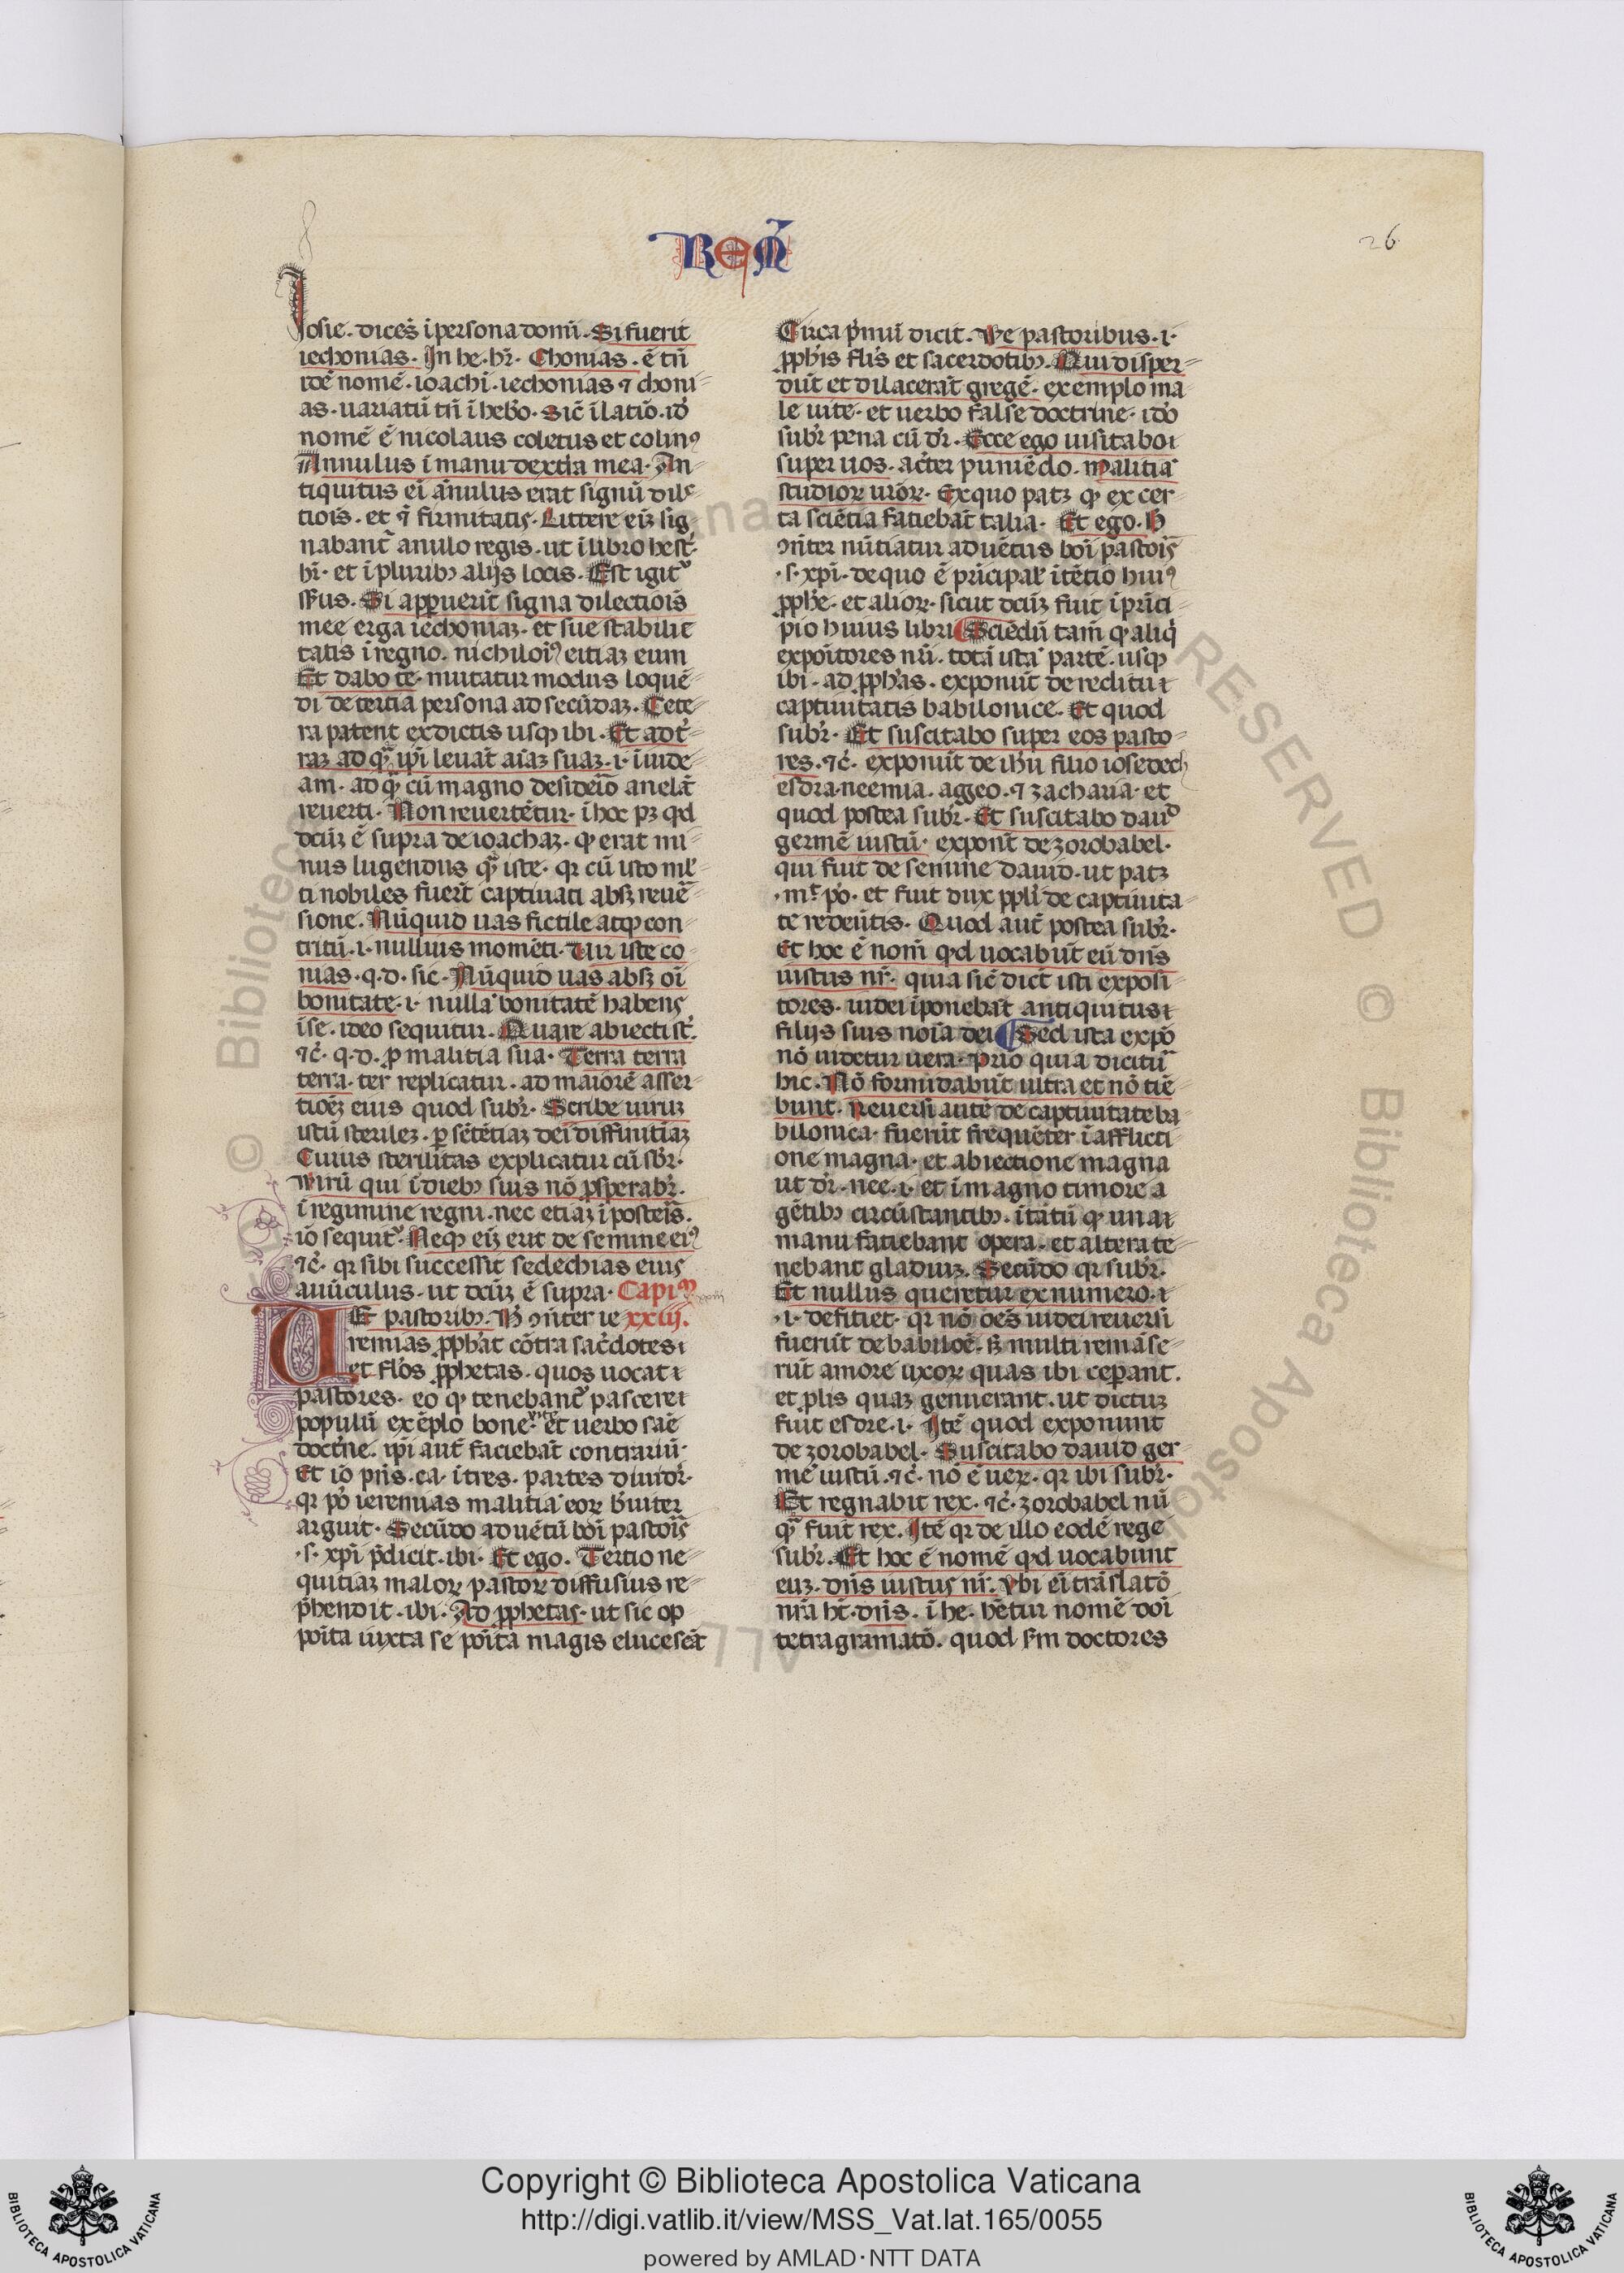 REM̃
26
Josie. dicēs ĩ persona domī. Si fuerit
iechonias. In he. hr̃. Chonias. ē tñ
idē nomē. ioachĩ. iechonias ⁊ choni-
as. uariatũ tñ ĩ hebr̃o. Sic̃ ĩ latiō. id̾
nomē ē nicolaus coletus et colinꝰ
Annulus ĩ manu dextra mea. An-
tiquitus eĩ ãnulus erat signũ dilc̃-
tiõis. et ⁊ firmitatis. Littere eĩ sig-
nabant̃ anulo regis. ut ĩ libro hest̾.
hr̃. et ĩ pluribꝫ alijs locis. Est igit̾
sẽsus. Si apparuerĩt signa dilectiois̃
mee erga iechoniaꝫ. et sue stabili-
tatis ĩ regno. nichiloĩꝰ eitiaꝫ eum
Et dabo te. mutatur modus loquē-
di de tertia persona ad secũdaꝫ. Cete-
ra patent ex dictis usqꝫ ibi. Et ad t̾-
raꝫ ad q̃ ip̃i leuãt aĩaꝫ suaꝫ. i. ĩ iude-
am. ad q̃ cũ magno desideĩo anelãt
reuerti. Non reuertētur. ĩ hoc pꝫ qd̾
dcũꝫ ē supra de ioachaꝫ. qꝫ erat mi-
nus lugendus q̃ iste. qꝛ cũ isto ml̾-
ti nobiles fuerũt captiuati absꝫ reuer̃-
sione. Nũquid uas fictile atqꝫ con-
tritũ. i. nullius momēti. Uir iste co-
nias. q. d. sic. Nũquid uas absꝫ oĩ
bonitate. i. nullã bonitatē habens
ĩ se. ideo sequitur. Quare abiecti st̾.
⁊c̃. q. d. ꝓ malitia sua. Terra terra
terra. ter replicatur. ad maiorē asser-
tioēꝫ eius quod subr̾. Scribe uiruꝫ
istũ sterileꝫ. ꝑ sētētiaꝫ dei diffinitiuaꝫ
Cuius sterilitas explicatur cũ sbr̾.
Uirũ qui ĩ diebꝫ suis nō ꝓsperabr̾.
ĩ regimine regni. nec etiaꝫ ĩ posteis̃.
iō sequit̾. Neqꝫ eĩ erit de semine eiꝰ
⁊c̃. qꝛ sibi successit sedechias eius
auũculus. ut dcũꝫ ē supra. Capim̃
UE pastoribꝫ. Hͦ ↄñter ie xxiij.
remias ꝓph̃at cōtra sac̾dotes ⁊
et fl̃os ꝓphetas. quos uocat ⁊
pastores. eo qꝫ tenebant̃ pascere ⁊
populũ exēplo bone uite. et uerbo sãe
doct̾ne. ip̃i aut̃ faciebãt contrariũ.
Et iō p̃ns. ca. ĩ tres. partes diuidr̾.
qꝛ pͦ ieremias malitiã eoꝝ b̾uiter
arguit. Secũdo aduētũ boĩ pastois̃
.s. xp̃i p̾dicit. ibi. Et ego. Tertio ne-
quitiaꝫ maloꝝ pastoꝝ diffusius re-
p̾hendit. ibi. Ad ꝓphetas. ut sic op
poĩta iuxta se poĩta magis elucescãt
Circa p̾mũ dicit. Ve pastoribus. i.
ꝓph̃is fl̃is et sacerdotibꝫ. Qui disper-
dũt et dilacerãt gregē. exemplo ma-
le uite. et uerbo false doctrine. idͦo
subr̾ pena cũ dr̾. Ecce ego uisitabo ⁊
super uos. ac̾ter puniēdo. Malitiã
studioꝝ ur̃oꝝ. Ex quo patꝫ qꝫ ex cer-
ta sciētia fatiebãt talia. Et ego. Hͦ
ↄñter nũtiatur aduētus boĩ pastois̃
.s. xp̃i. de quo ē p̾ncipal̾ ĩtētio huiꝰ
ꝓph̃e. et alioꝝ. sicut dcũꝫ fuit ĩ p̾nci-
pio huius libri ¶ Sciēdũ tam̃ qꝫ aliq̾
expoĩtores nr̃i. totã istã partē. usqꝫ
ibi. ad ꝓph̃as. exponũt de reditu ⁊
captiuitatis babilonice. Et quod
subr̾. Et suscitabo super eos pasto-
res. ⁊c̃. exponũt de ih̃u filio iosedech
esdra. neemia. aggeo. ⁊ zacharia. et
quod postea subr̾. Et suscitabo dauͩ
germē iustũ. exponũt de zorobabel.
qui fuit de semine dauid. ut patꝫ
.mͭ. pͦ. et fuit dux ppl̾i de captiuita-
te redeũtis. Quod aut̃ postea subr̾.
Et hoc ē nom̃ qd̾ uocabũt eũ dñs
iustus nr̃. quia sic̃ dicũt isti exposi-
tores. iudei ĩponebãt antiquitus ⁊
filijs suis noĩa dei ¶ Sed ista expͦo
nō uidetur uera. Prĩo quia dicitur̃
hic. Nō formidabũt ultra et nō tĩe-
bunt. Reuersi autē de captiuitate ba
bilonica. fuerũt frequēter ĩ afflicti-
one magna. et abiectione magna
ut dr̾. nee. i. et ĩ magno timore a
gētibꝫ circũstantibꝫ. ĩ tãtũ qꝫ una ⁊
manu fatiebant opera. et altera te-
nebant gladiuꝫ. Secũdo qꝛ subr̾.
Et nullus queretur ex numero. ⁊
.i. defitiet. qꝛ nō oēs iudei reuersi
fuerũt de babiloē. sꝫ multi remãse-
rũt amore uxoꝝ quas ibi ceperant.
et ꝓlis quaꝫ genuerant. ut dictuꝫ
fuit esdre. i. Itē quod exponunt
de zorobabel. Suscitabo dauid ger
mē iustũ. ⁊c̃. nō ē ueꝝ. qꝛ ibi subr̾.
Et regnabit rex. ⁊c̃. zorobabel nũ
q̃ fuit rex. Itē qꝛ de illo eodē rege
subr̾. Et hoc ē nomē qd̾ uocabunt
euꝫ. dñs iustus nr̃. Vbi eĩ trãslatō
nr̃a hꝫ. dñs. ĩ he. hētur nomē doĩ
tetragramatō. quod sm̃ doctores
Copyright © Biblioteca Apostolica Vaticana
http://digi.vatlib.it/view/MSS_Vat.lat.165/0055
powered by AMLAD·NTT DATA